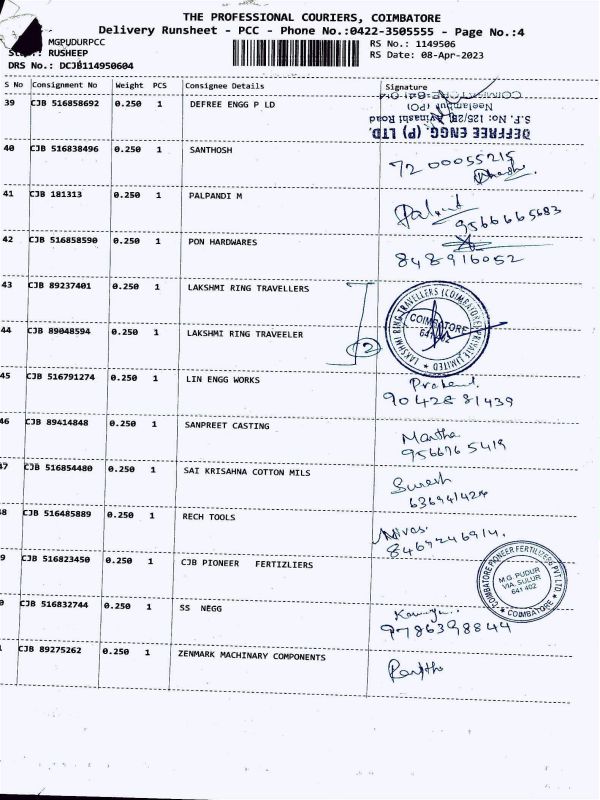 THE PROFESSIONAL COURIERS, COIMBATORE
Delivery Runsheet - PCC - Phone No.:0422-3505555 - Page No.:4
MGPUDURPCC
RUSHEEP
DRS No.: DCJB114950604
RS No.: 1149506
RS Date: 08-Apr-2023
S No Consignment No Weight PCS Consignee Details Signature
39 CJB 516858692 0.250 1 DEFREE ENGG P LD
Neelambur (PO)
S.F. No: 125/2B, Avinashi Road
DEFFREE ENGG. (P) LTD.
40 CJB 516838496 0.250 1 SANTHOSH
72 00055215
41 CJB 181313 0.250 1 PALPANDI M
9566665683
42 CJB 516858590 0.250 1 PON HARDWARES
848916052
43 CJB 89237401 0.250 1 LAKSHMI RING TRAVELLERS
LAKSHMI RING TRAVELLERS (COIMBATORE) PRIVATE LIMITED
COIMBATORE
44 CJB 89048594 0.250 1 LAKSHMI RING TRAVEELER
2
45 CJB 516791274 0.250 1 LIN ENGG WORKS
90428 81439
46 CJB 89414848 0.250 1 SANPREET CASTING
Martha
956676 5419
47 CJB 516854480 0.250 1 SAI KRISAHNA COTTON MILS
Suresh
8 CJB 516485889 0.250 1 RECH TOOLS
Nivas.
8469246914.
9 CJB 516823450 0.250 1 CJB PIONEER FERTIZLIERS
COIMBATORE PIONEER FERTILIZERS PVT LTD.
M.G. PUDUR
VIA. SULUR
641 402
COIMBATORE
0 CJB 516832744 0.250 1 SS NEGG
9786398844
CJB 89275262 0.250 1 ZENMARK MACHINARY COMPONENTS